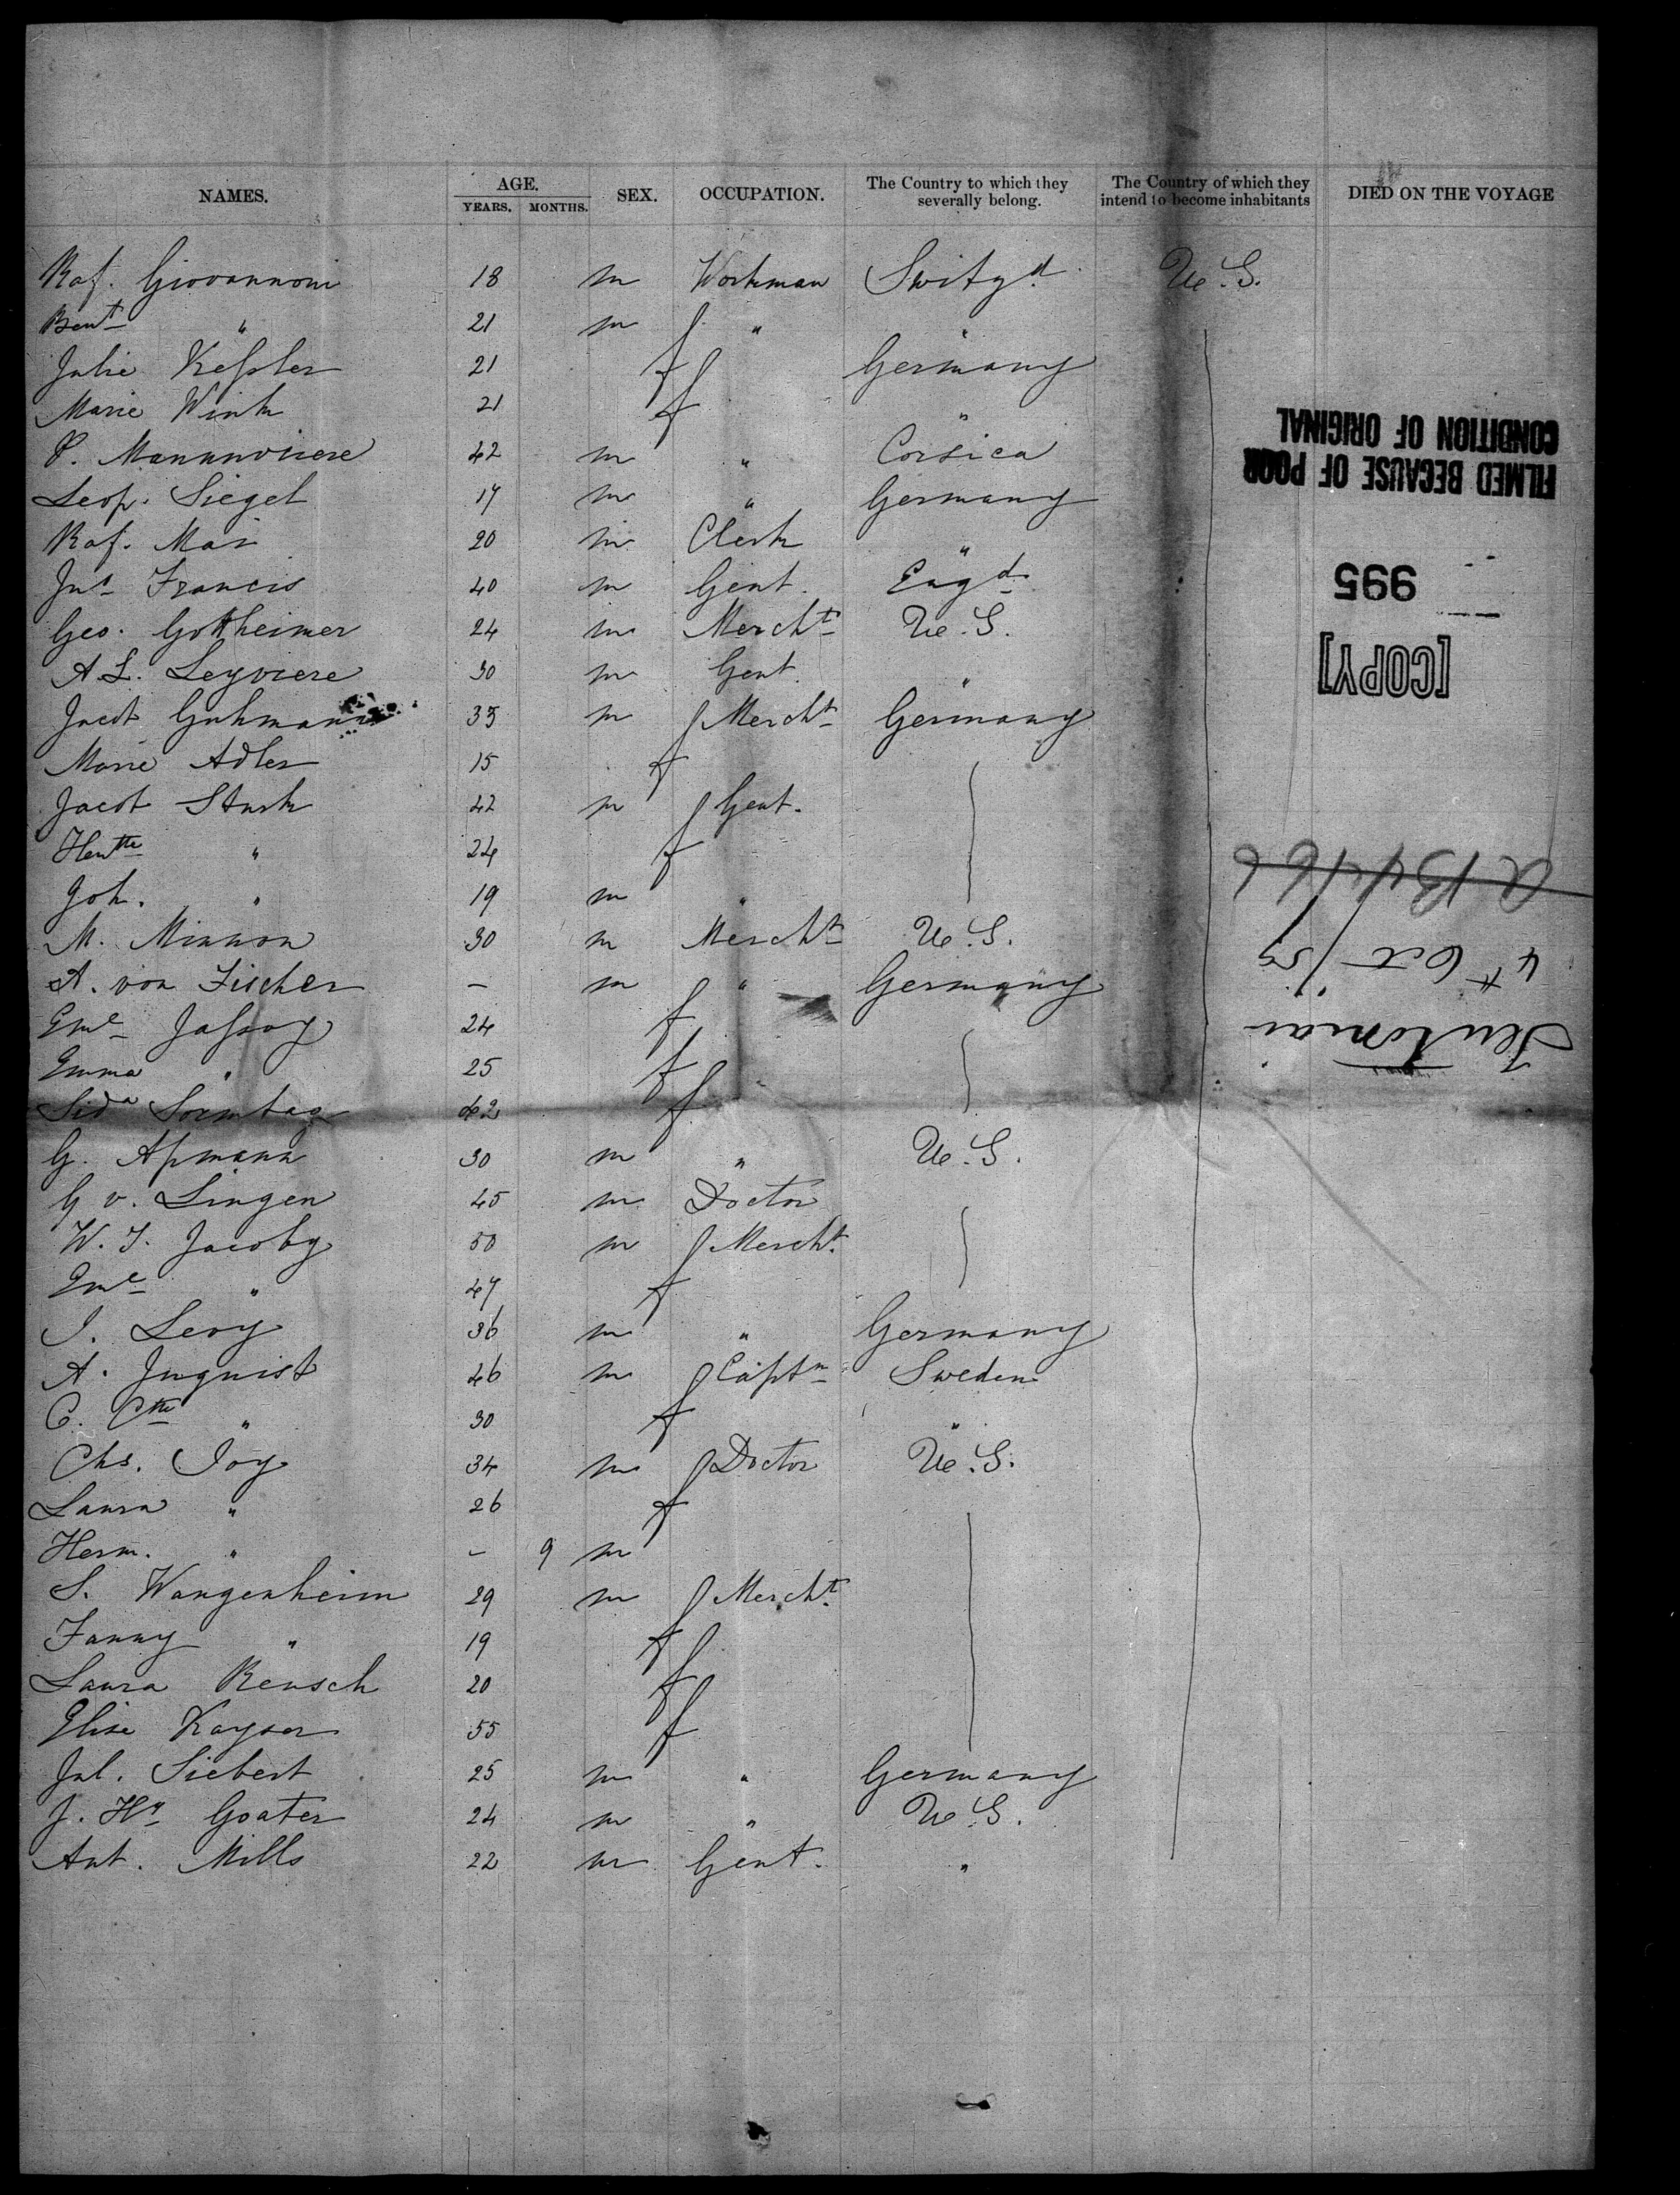 NAMES. AGE. YEARS. MONTHS. SEX. OCCUPATION. The Country to which they severally belong. The Country of which they intend to become inhabitants DIED ON THE VOYAGE
Raf. Giovannoni 18 m Workman Switzd. U.S.
Bent " 21 m " "
Julie Keßler 21 f Germany
Marie Wink 21 f "
P. 42 m " Corsica
Leop. Siegel 17 m " Germany
Raf. Mai 20 m Clerk "
Jns Francis 40 m Gent. Engd.
Geo. Gottheimer 24 m Mercht U.S.
A.L. Leyviere 30 m Gent. "
Jacob Guhmann 35 m Mercht Germany
Marie Adler 15 f
Jacob Stark 42 m Gent.
Hentte " 24 f
Joh. " 19 m "
M. Minnon 30 m Mercht U.S.
A. von Fischer – m " Germany
Eme Jaßoy 24 f
Emma " 25 f
Sida Sonntag 42 f
G. Apmann 30 m " U.S.
G v. Lingen 45 m Doctor
W. F. Jacoby 50 m Mercht.
Eme " 47 f
I. Levy 36 m " Germany
A. Juquist 46 m Captn Sweden
C. Cthe " 30 f "
Chs. Joy 34 m Doctor U.S.
Laura " 26 f
Herm. " – 9 m
S. Wangenheim 29 m Mercht.
Fanny " 19 f
Laura Rensch 20 f
Elise Kayser 55 f
Jul. Siebert 25 m " Germany
J. Hy Goater 24 m " U.S.
Ant. Mills 22 m Gent. "
Teutonia
4th Oct /59
[COPY]
995
FILMED BECAUSE OF POOR
CONDITION OF ORIGINAL